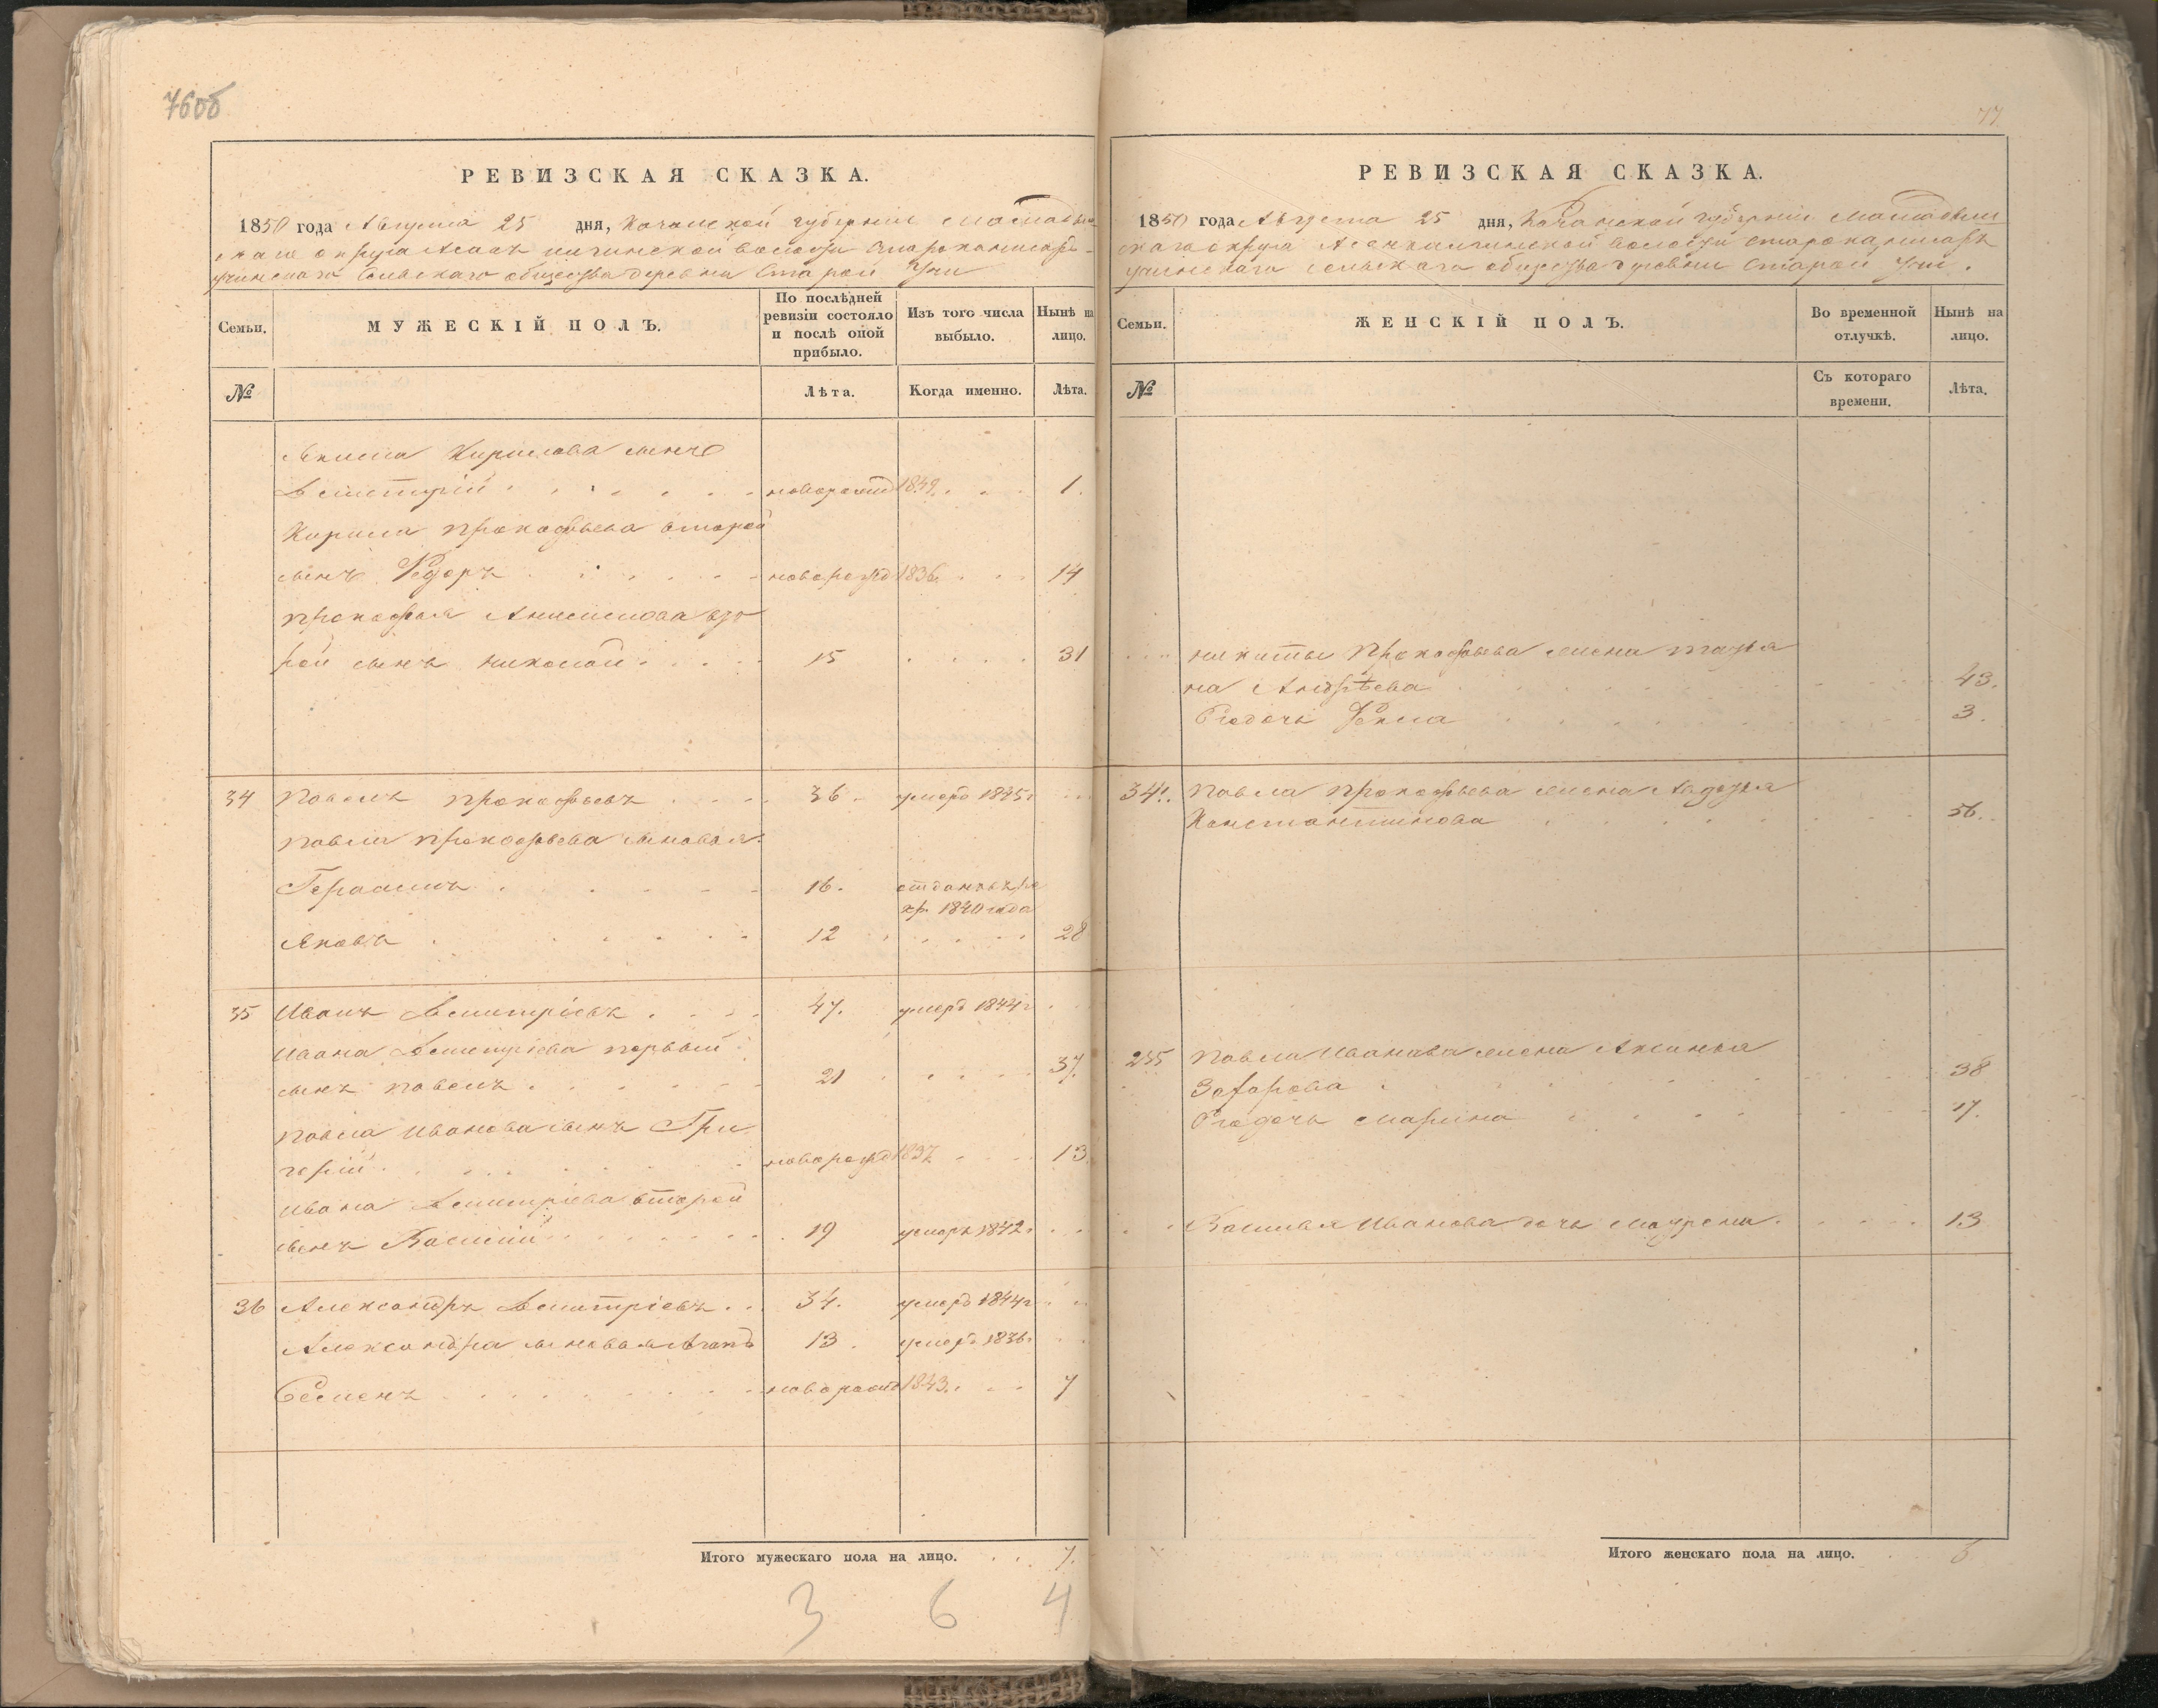 76об
РЕВИЗСКАЯ СКАЗКА.
1850 года Августа 25 дня, Казанской губерніи Мамадыш
скаго округа Асан Сельскаго общества деревни Старой Учи
Семьи.
МУЖЕСКІЙ ПОЛЪ.
По послѣдней ревизіи состояло и послѣ оной прибыло.
Изъ того числа выбыло.
Нынѣ на лицо.
№
Лѣта.
Когда именно.
Лѣта.
Якима Кирилова сынъ
Дмитрій новорожд 1849 1.
Кирила Прокофьева второй
сынъ Федоръ новорожд 1836 14
Прокофья Анисимова вто
рой сынъ Николай 15 31
34 Павелъ Прокофьевъ 36 умеръ 1845г
Павла Прокофьева сыновья:
Герасимъ 16. отданъ въ ре
кр. 1840 года
Яковъ 12 28
35 Иванъ Дмитріевъ 47. умеръ 1844г
Ивана Дмитріева первый
сынъ Павелъ 21 37.
Павла Иванова сынъ Гри
горій новорожд 1837 13
Ивана Дмитріева второй
сынъ Василій 19 умеръ 1842г
36 Александръ Дмитріевъ 34. умеръ 1844г
Александра сыновья 13 умеръ 1836г
Семенъ новорожд 1843 7
Итого мужескаго пола на лицо. 7.
3 6 4
77
РЕВИЗСКАЯ СКАЗКА.
1850 года Августа 25 дня, Казанской губерніи Мамадыш
скаго округа волости
сельскаго общества деревни Старой Учи.
Семьи.
ЖЕНСКІЙ ПОЛЪ.
Во временной отлучкѣ.
Нынѣ на лицо.
№
Съ котораго времени.
Лѣта.
Никиты Прокофьева жена Татья
на Андрѣева 43.
Его дочь Фекла 3.
34. Павла Прокофьева жена Авдотья
Константинова 56.
35 Павла Иванова жена Аксинья
Захарова 38
Его дочь Марина 17.
Василья Иванова дочь Матрена. 13
Итого женскаго пола на лицо. 6